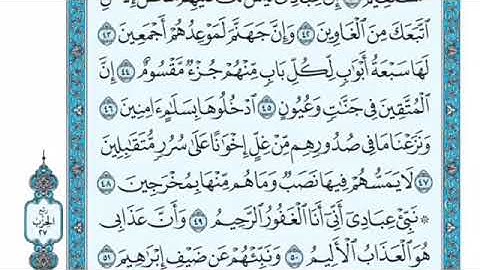 ٱتَّبَعَكَ مِنَ ٱلۡغَاوِينَ ٤٢ وَإِنَّ جَهَنَّمَ لَمَوۡعِدُهُمۡ أَجۡمَعِينَ ٤٣
لَهَا سَبۡعَةُ أَبۡوَٰبٖ لِّكُلِّ بَابٖ مِّنۡهُمۡ جُزۡءٞ مَّقۡسُومٌ ٤٤ إِنَّ
ٱلۡمُتَّقِينَ فِي جَنَّٰتٖ وَعُيُونٍ ٤٥ ٱدۡخُلُوهَا بِسَلَٰمٍ ءَامِنِينَ ٤٦
وَنَزَعۡنَا مَا فِي صُدُورِهِم مِّنۡ غِلٍّ إِخۡوَٰنًا عَلَىٰ سُرُرٖ مُّتَقَٰبِلِينَ
٤٧ لَا يَمَسُّهُمۡ فِيهَا نَصَبٞ وَمَا هُم مِّنۡهَا بِمُخۡرَجِينَ ٤٨
۞ نَبِّئۡ عِبَادِيٓ أَنِّيٓ أَنَا ٱلۡغَفُورُ ٱلرَّحِيمُ ٤٩ وَأَنَّ عَذَابِي
هُوَ ٱلۡعَذَابُ ٱلۡأَلِيمُ ٥٠ وَنَبِّئۡهُمۡ عَن ضَيۡفِ إِبۡرَٰهِيمَ ٥١
ربع
الحزب
٢٧